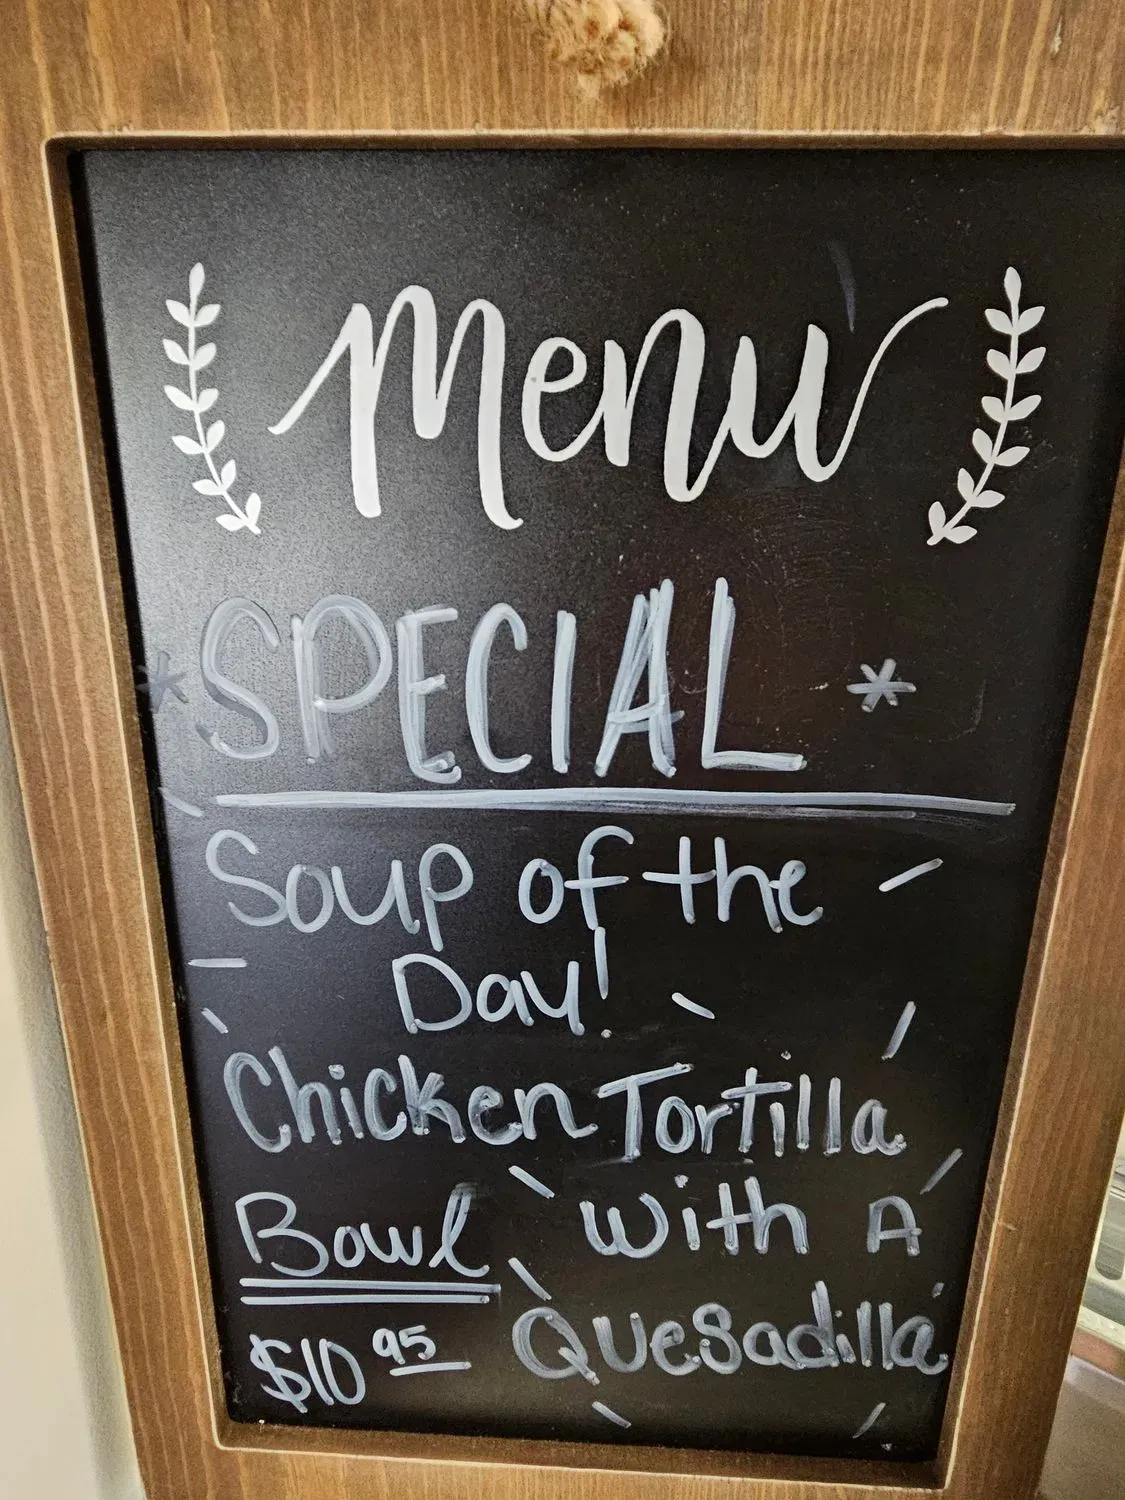 Menu
*SPECIAL*
Soup of the
Day!
Chicken Tortilla
Bowl with A
$10.95 Quesadilla